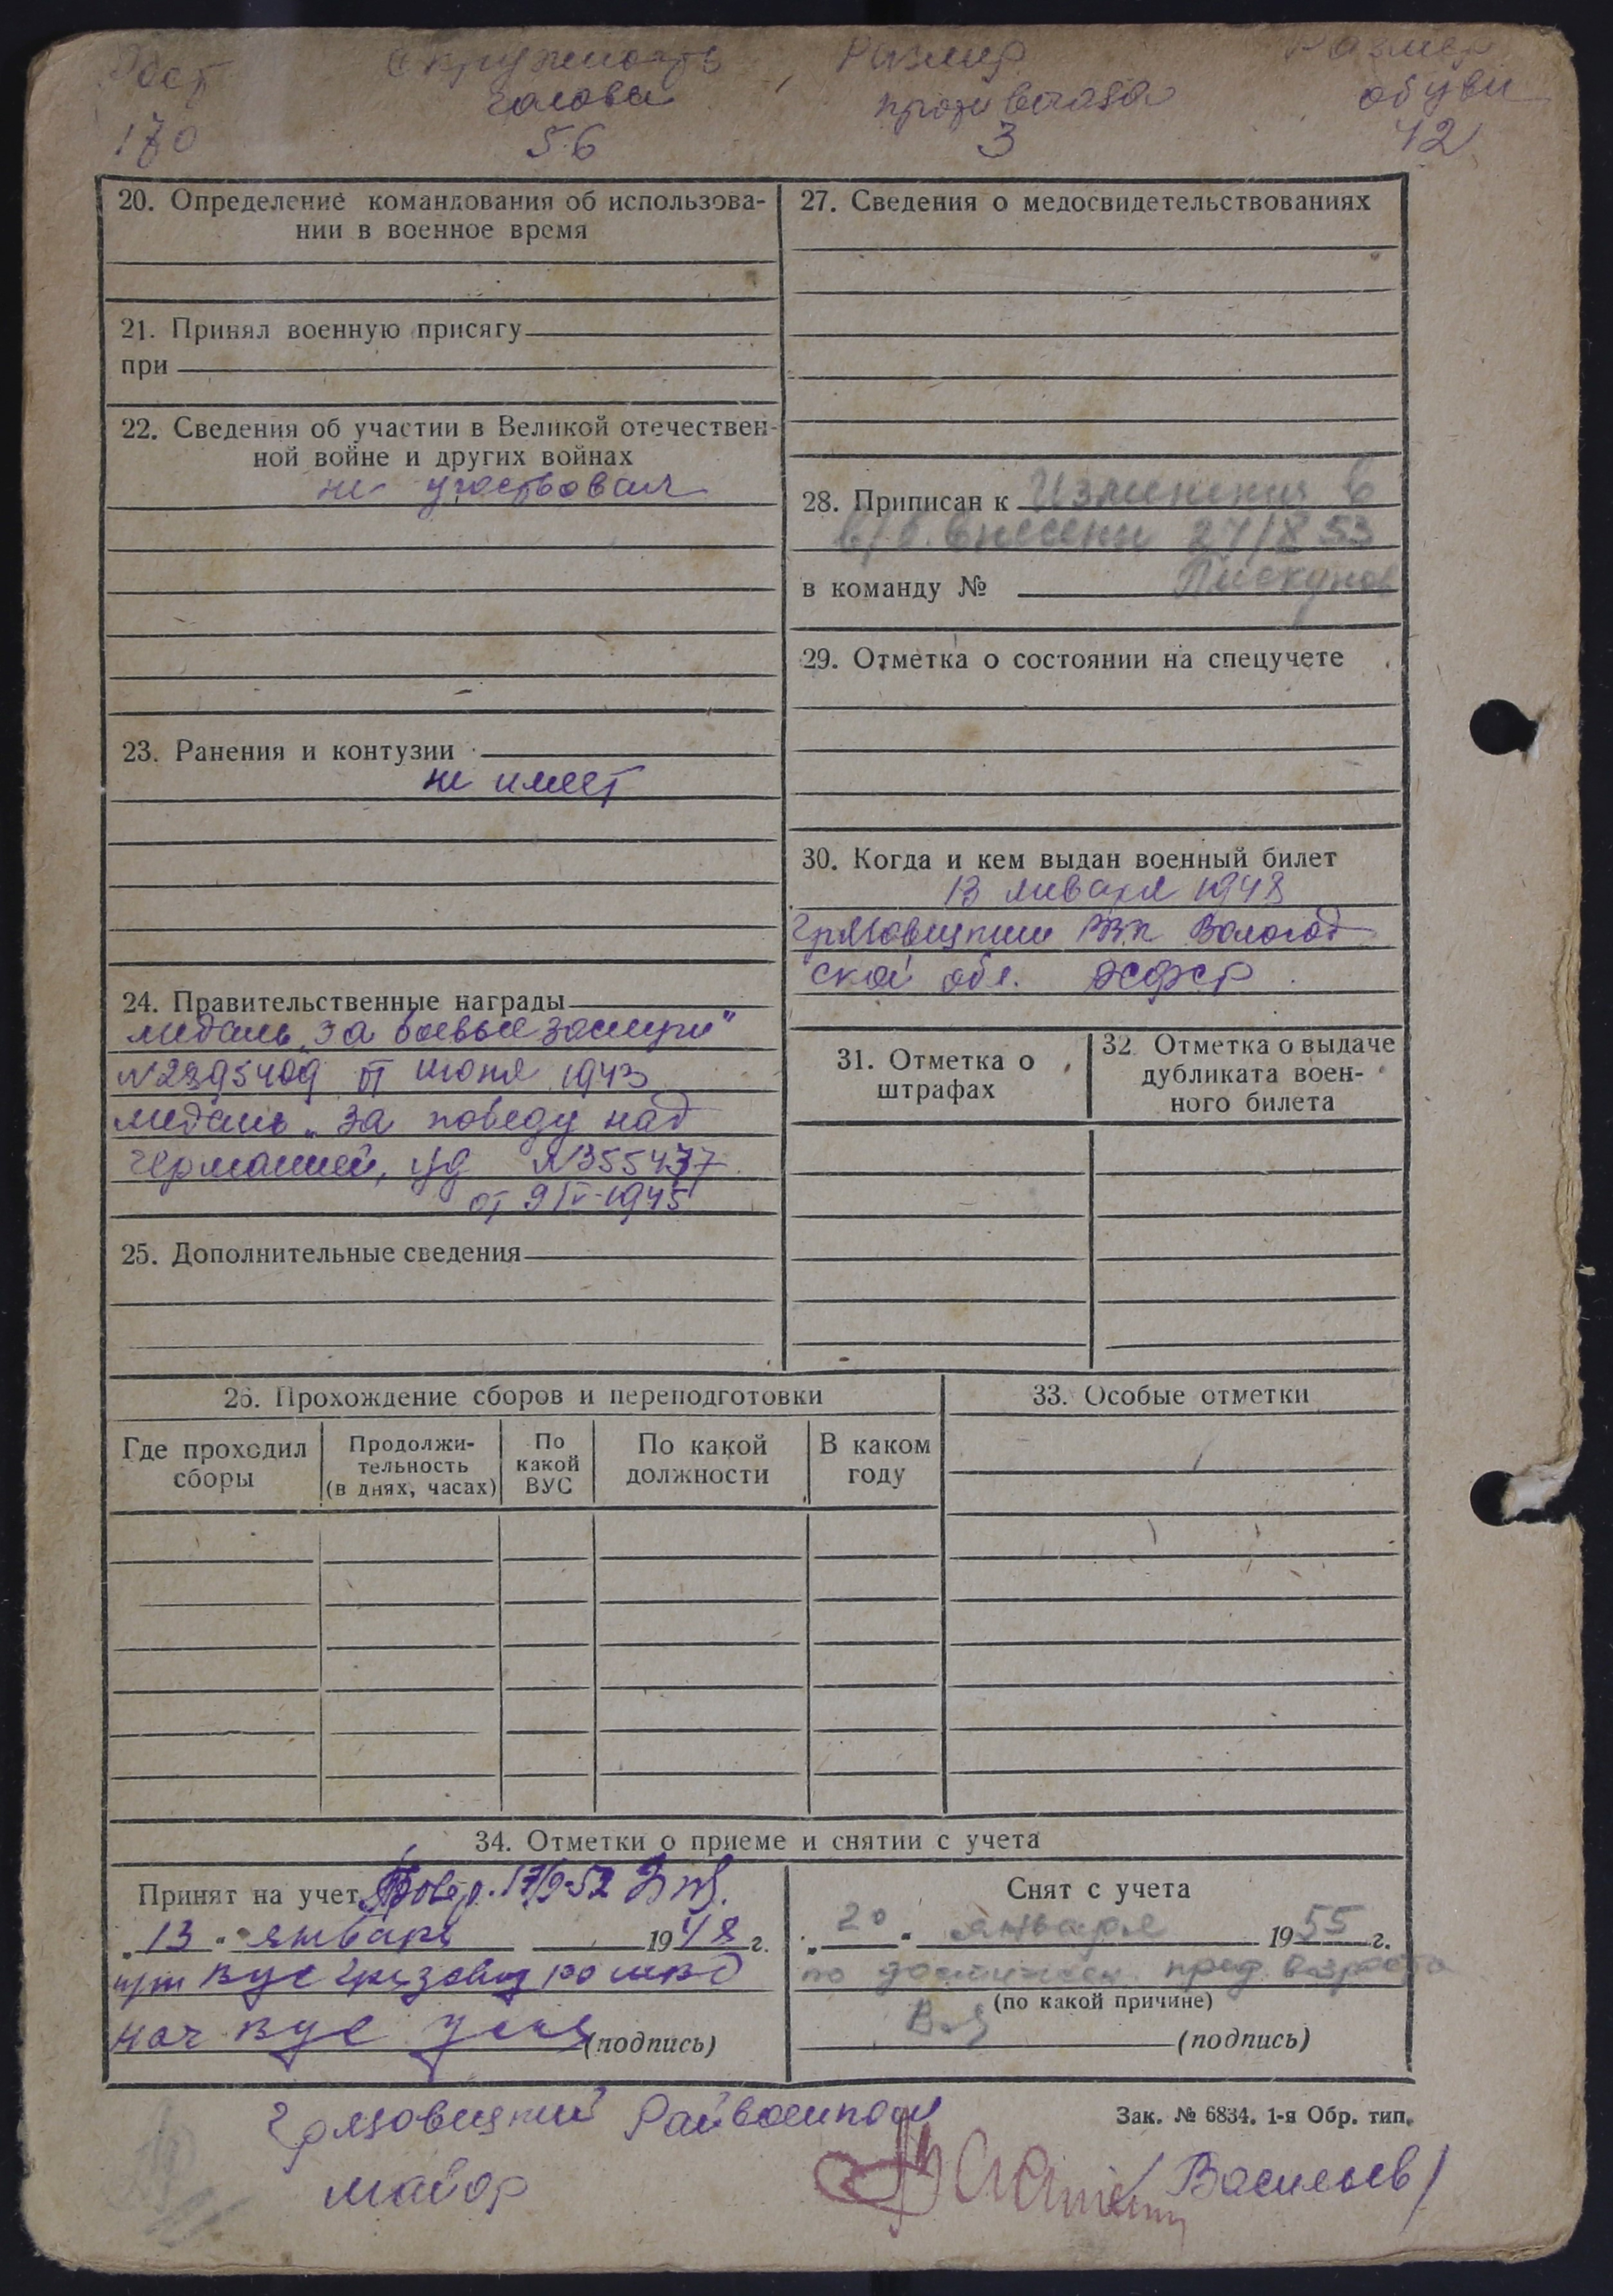 Рост Окружность Размер Размер
головы противогаза обуви
170 56 3 42
20. Определение командования об использова-
нии в военное время
21. Принял военную присягу
при
22. Сведения об участии в Великой отечествен-
ной войне и других войнах
не участвовал
23. Ранения и контузии
не имеет
24. Правительственные награды
медаль „За боевые заслуги"
№2895409 от июня 1943
медаль „За победу над
Германией, уд №355477
от 9/V-1945
25. Дополнительные сведения
27. Сведения о медосвидетельствованиях
28. Приписан к Изменения в
в/б. внесены 27/8 53
в команду № Пискунов
29. Отметка о состоянии на спецучете
30. Когда и кем выдан военный билет
13 января 1948
Грязовецким РВК Вологод
ской обл. РСФСР
31. Отметка о
штрафах
32. Отметка о выдаче
дубликата воен-
ного билета
26. Прохождение сборов и переподготовки
Где проходил
сборы
Продолжи-
тельность
(в днях, часах)
По
какой
ВУС
По какой
должности
В каком
году
33. Особые отметки
34. Отметки о приеме и снятии с учета
Принят на учет
„13" января 1948 г.
нач (подпись)
Снят с учета
„20" января 1955 г.
по достижен. пред. возраста
(по какой причине)
(подпись)
Зак. № 6834. 1-я Обр. тип.
Грязовецкий Райвоенком
майор /Васильев/